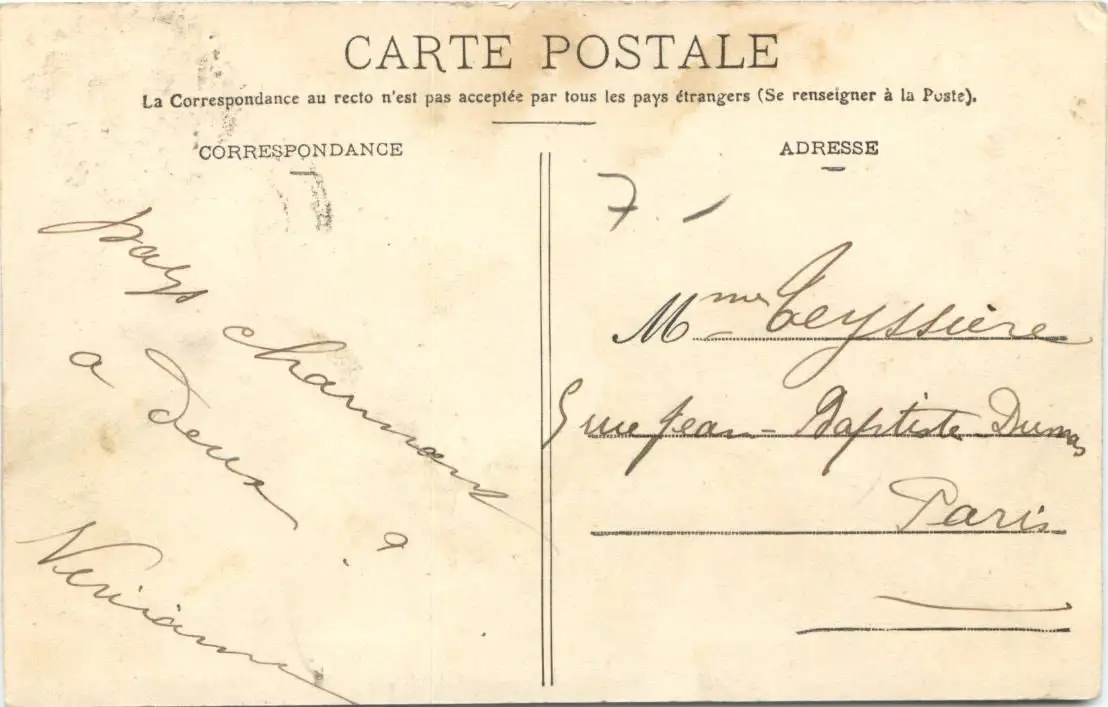 CARTE POSTALE
La Correspondance au recto n'est pas acceptée par tous les pays étrangers (Se renseigner à la Poste).
CORRESPONDANCE
ADRESSE
pays charmant
a deux
7. -
Mme Teyssière
5 rue Jean-Baptiste Dumas
Paris